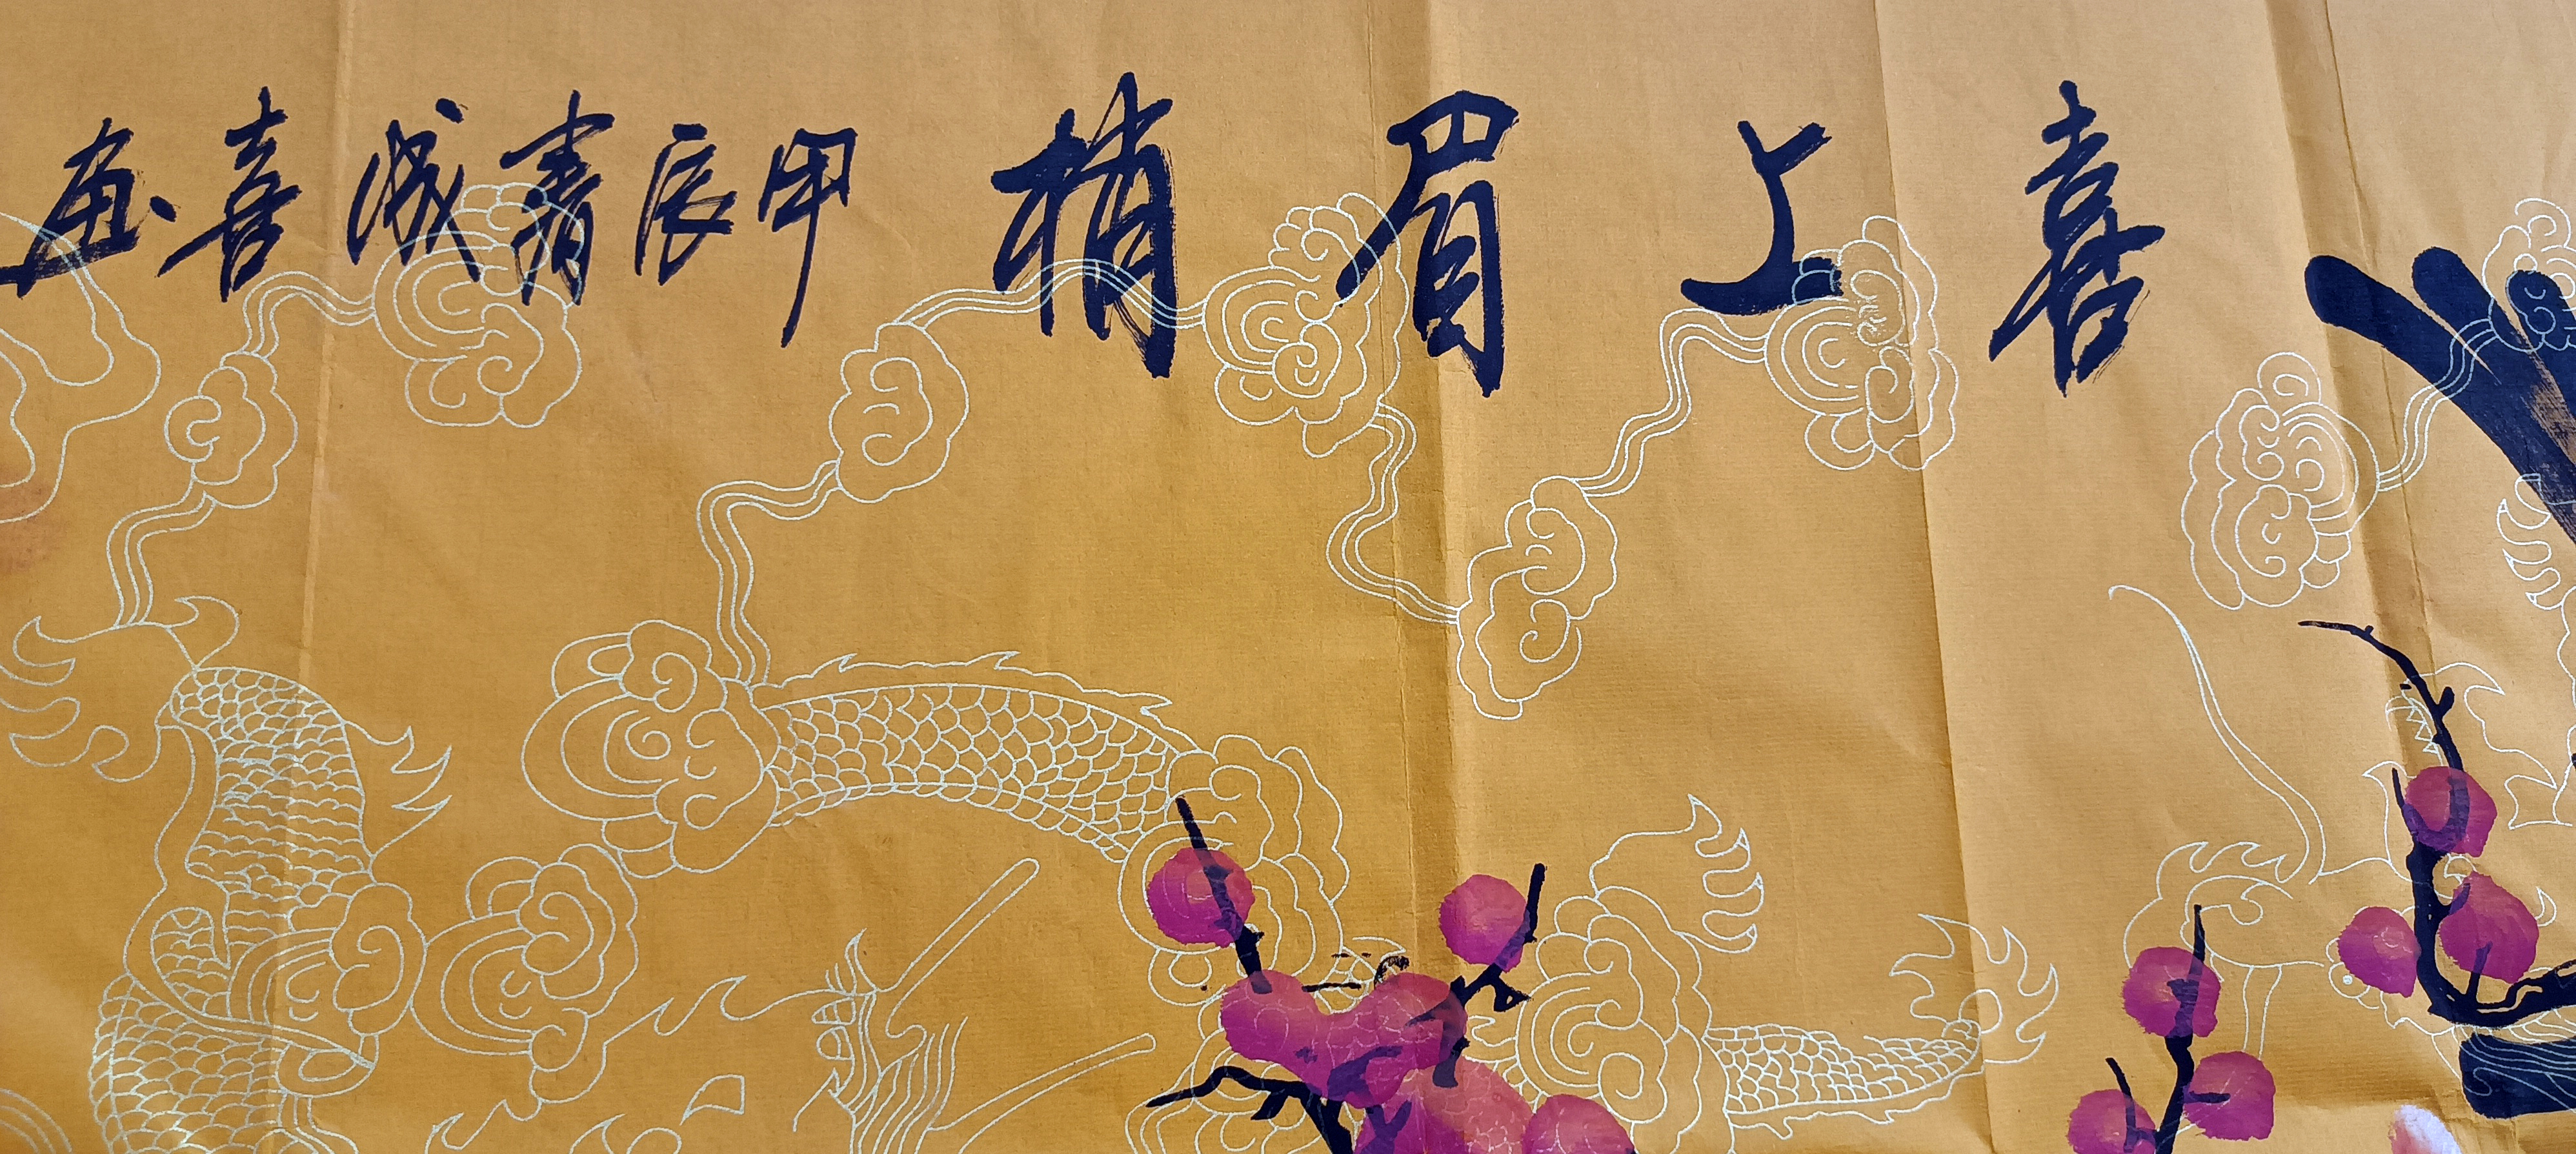 喜上眉梢 甲辰青喜画